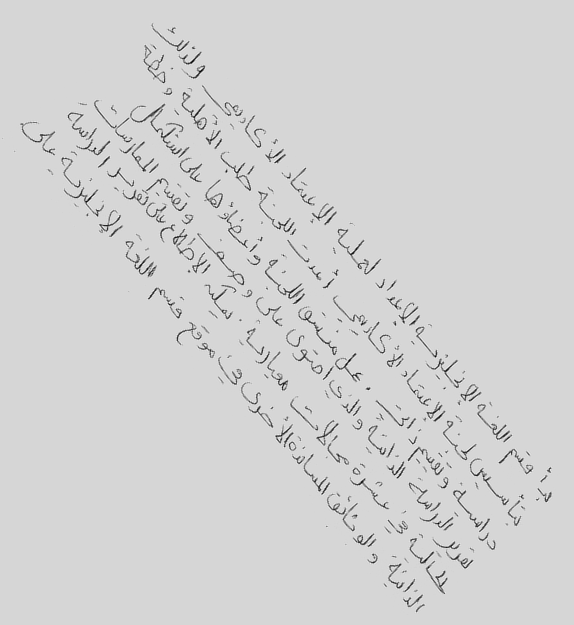 بدأ قسم اللغة الإنجليزية الإعداد لعملية الإعتماد الأكاديمي وذلك
بتأسيس لجنة الإعتماد الأكاديمي أعدت اللجنة طلب الأهلية وخطة
دراسية وتقييم ذاتي . عمل منسق اللجنة وأعضاؤها على استكمال
تقرير الدراسة الذاتية والذي احتوى على وصف وتقييم الممارسات
الحالية في عشرة مجالات معيارية . يمكنك الإطلاع على تقرير الدراسة
الذاتية والوثائق المساندة الأخرى في موقع قسم اللغة الإنجليزية على